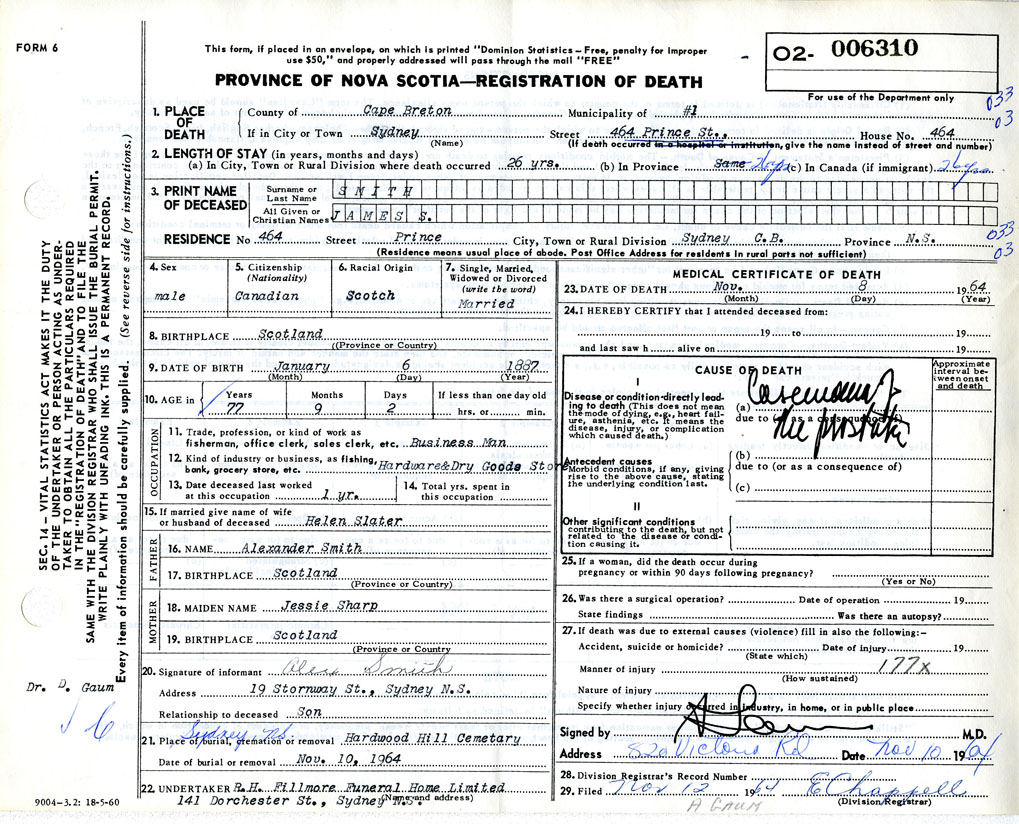 FORM 6
This form, if placed in an envelope, on which is printed "Dominion Statistics – Free, penalty for improper
use $50," and properly addressed will pass through the mail "FREE"
02- 006310
For use of the Department only
PROVINCE OF NOVA SCOTIA—REGISTRATION OF DEATH
033
03
1. PLACE OF DEATH
County of Cape Breton Municipality of #1
If in City or Town Sydney Street 464 Prince St., House No. 464
(Name) (If death occurred in a hospital or institution, give the name instead of street and number)
2. LENGTH OF STAY (in years, months and days)
(a) In City, Town or Rural Division where death occurred 26 yrs. (b) In Province Same (c) In Canada (if immigrant)
3. PRINT NAME OF DECEASED
Surname or Last Name SMITH
All Given or Christian Names JAMES S.
033
03
RESIDENCE No 464 Street Prince City, Town or Rural Division Sydney C.B. Province N.S.
(Residence means usual place of abode. Post Office Address for residents in rural parts not sufficient)
4. Sex male
5. Citizenship (Nationality) Canadian
6. Racial Origin Scotch
7. Single, Married, Widowed or Divorced (write the word) Married
8. BIRTHPLACE Scotland
((Province or Country)
9. DATE OF BIRTH January 6 1887
(Month) (Day) (Year)
10. AGE in Years Months Days If less than one day old
77 9 2 hrs. or min.
OCCUPATION
11. Trade, profession, or kind of work as
fisherman, office clerk, sales clerk, etc. Business Man
12. Kind of industry or business, as fishing,
bank, grocery store, etc. Hardware&Dry Goods Store
13. Date deceased last worked
at this occupation 1 yr.
14. Total yrs. spent in
this occupation
15. If married give name of wife
or husband of deceased Helen Slater
FATHER
16. NAME Alexander Smith
17. BIRTHPLACE Scotland
(Province or Country)
MOTHER
18. MAIDEN NAME Jessie Sharp
19. BIRTHPLACE Scotland
(Province or Country)
20. Signature of informant Alex Smith
Address 19 Stornway St., Sydney N.S.
Relationship to deceased Son
Sydney N.S.
21. Place of burial, cremation or removal Hardwood Hill Cemetary
Date of burial or removal Nov. 10, 1964
22. UNDERTAKER R.H. Fillmore Funeral Home Limited
141 Dorchester St., Sydney N.S.
(Name and address)
MEDICAL CERTIFICATE OF DEATH
23. DATE OF DEATH Nov. 8 1964
(Month) (Day) (Year)
24. I HEREBY CERTIFY that I attended deceased from:
19 to 19
and last saw h alive on 19
CAUSE OF DEATH
Approximate interval between onset and death
I
Disease or condition-directly leading to death (This does not mean the mode of dying, e.g., heart failure, asthenia, etc. It means the disease, injury, or complication which caused death.)
(a)
due to (or as a consequence of)
the prostate
Antecedent causes
Morbid conditions, if any, giving rise to the above cause, stating the underlying condition last.
(b)
due to (or as a consequence of)
(c)
II
Other significant conditions
contributing to the death, but not related to the disease or condition causing it.
25. If a woman, did the death occur during
pregnancy or within 90 days following pregnancy?
(Yes or No)
26. Was there a surgical operation? Date of operation 19
State findings Was there an autopsy?
27. If death was due to external causes (violence) fill in also the following:–
Accident, suicide or homicide? Date of injury 19
(State which)
Manner of injury 177x
(How sustained)
Nature of injury
Specify whether injury occurred in industry, in home, or in public place
Signed by M.D.
Address 820 Victoria Rd Date Nov 10 1964
28. Division Registrar's Record Number
29. Filed Nov 12 1964 E Chappell
(Division Registrar)
A GAUM
SEC. 14 – VITAL STATISTICS ACT MAKES IT THE DUTY
OF THE UNDERTAKER OR PERSON ACTING AS UNDER-
TAKER TO OBTAIN ALL THE PARTICULARS REQUIRED
IN THE "REGISTRATION OF DEATH" AND TO FILE THE
SAME WITH THE DIVISION REGISTRAR WHO SHALL ISSUE THE BURIAL PERMIT.
WRITE PLAINLY WITH UNFADING INK. THIS IS A PERMANENT RECORD.
Every item of information should be carefully supplied. (See reverse side for instructions.)
Dr. D. Gaum
9004–3.2: 18-5-60